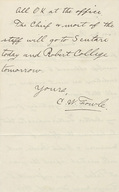 All OK at the office
The Chief & most of the
staff will go to Scutari
today and Robert College
tomorrow.
Yours,
C W Fowle